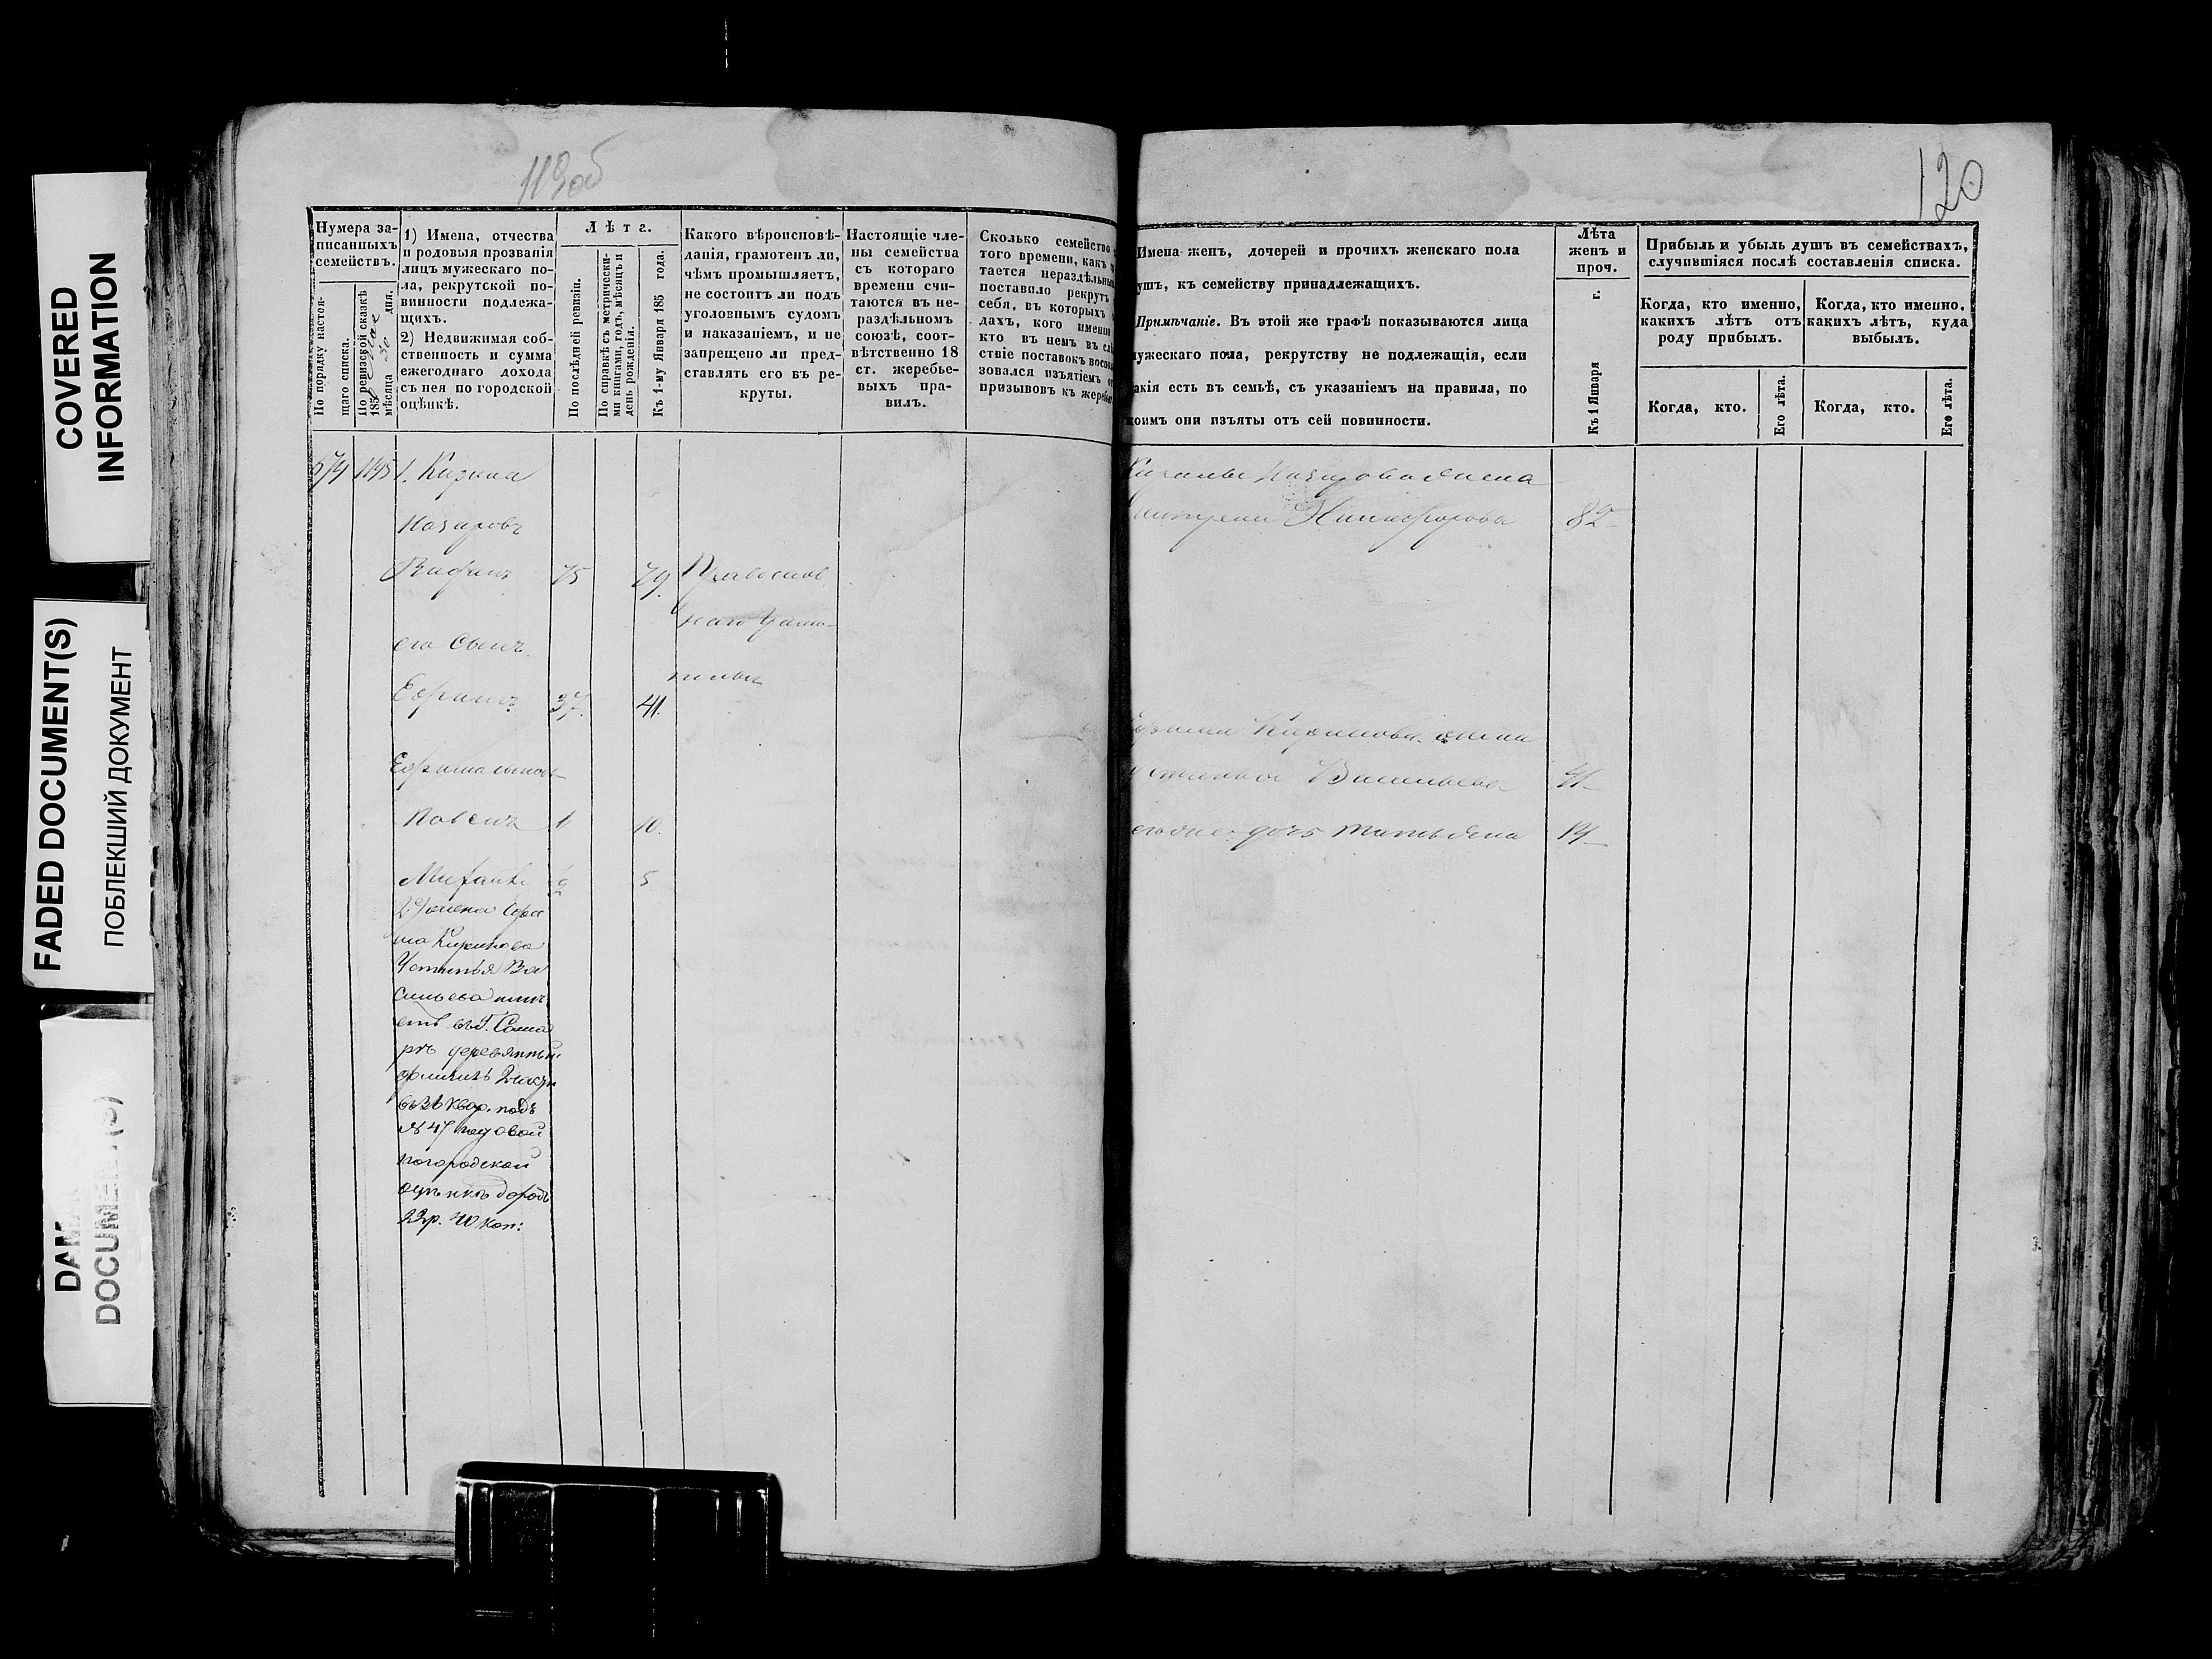 COVERED
INFORMATION
FADED DOCUMENT(S)
ПОБЛЕКШИЙ ДОКУМЕНТ
DAM
DOCUMENT(S)
119об
Нумера за-
писанныхъ
семействъ.
По порядку настоя-
щаго списка.
По ревизской сказкѣ
185
мѣсяца 30 дня.
1) Имена, отчества
и родовыя прозванія
лицъ мужескаго по-
ла, рекрутской по-
винности подлежа-
щихъ.
2) Недвижимая соб-
ственность и сумма
ежегоднаго дохода
съ нея по городской
оцѣнкѣ.
Лѣта.
По послѣдней ревизіи.
По справкѣ съ метрически-
ми книгами, годъ, мѣсяцъ и
день рожденія.
Къ 1-му Января 185 года.
Какого вѣроисповѣ-
данія, грамотенъ ли,
чѣмъ промышляетъ,
не состоитъ ли подъ
уголовнымъ судомъ
и наказаніемъ, и не
запрещено ли пред-
ставлять его въ ре-
круты.
Настоящіе чле-
ны семейства
съ котораго
времени счи-
таются въ не-
раздѣльномъ
союзѣ, соот-
вѣтственно 18
ст. жеребье-
выхъ пра-
вилъ.
Сколько семейство
того времени, какъ
тается нераздѣльнымъ
поставило рекрутъ
себя, въ которыхъ
дахъ, кого именно
кто въ немъ въ слѣд
ствіе поставокъ воспол
зовался изъятіемъ от
призывовъ къ жеребью
1.
Назаровъ
75
79
Православ
наго
его сынъ
Ефимъ 37. 41.
Ефима сыновья
Павелъ 10.
5
2 у жена Ефи
ма
Устинья Ва
сильева имѣ
етъ въ г. Сама
рѣ деревянный
флигиль
квар. подъ
№ 47
погородской
оцѣнкѣ доходъ
22р. 40 коп:
120
Имена женъ, дочерей и прочихъ женскаго пола
ушъ, къ семейству принадлежащихъ.
Примѣчаніе. Въ этой же графѣ показываются лица
ужескаго пола, рекрутству не подлежащія, если
акія есть въ семьѣ, съ указаніемъ на правила, по
коимъ они изъяты отъ сей повинности.
Лѣта
женъ и
проч.
Къ 1 Января г.
Прибыль и убыль душъ въ семействахъ,
случившіяся послѣ составленія списка.
Когда, кто именно,
какихъ лѣтъ отъ
роду прибылъ.
Когда, кто именно,
какихъ лѣтъ, куда
выбылъ.
Когда, кто.
Его лѣта.
Когда, кто.
Его лѣта.
Назарова жена
Никифорова 82
жена
Васильева 41
дочь Татьяна 19